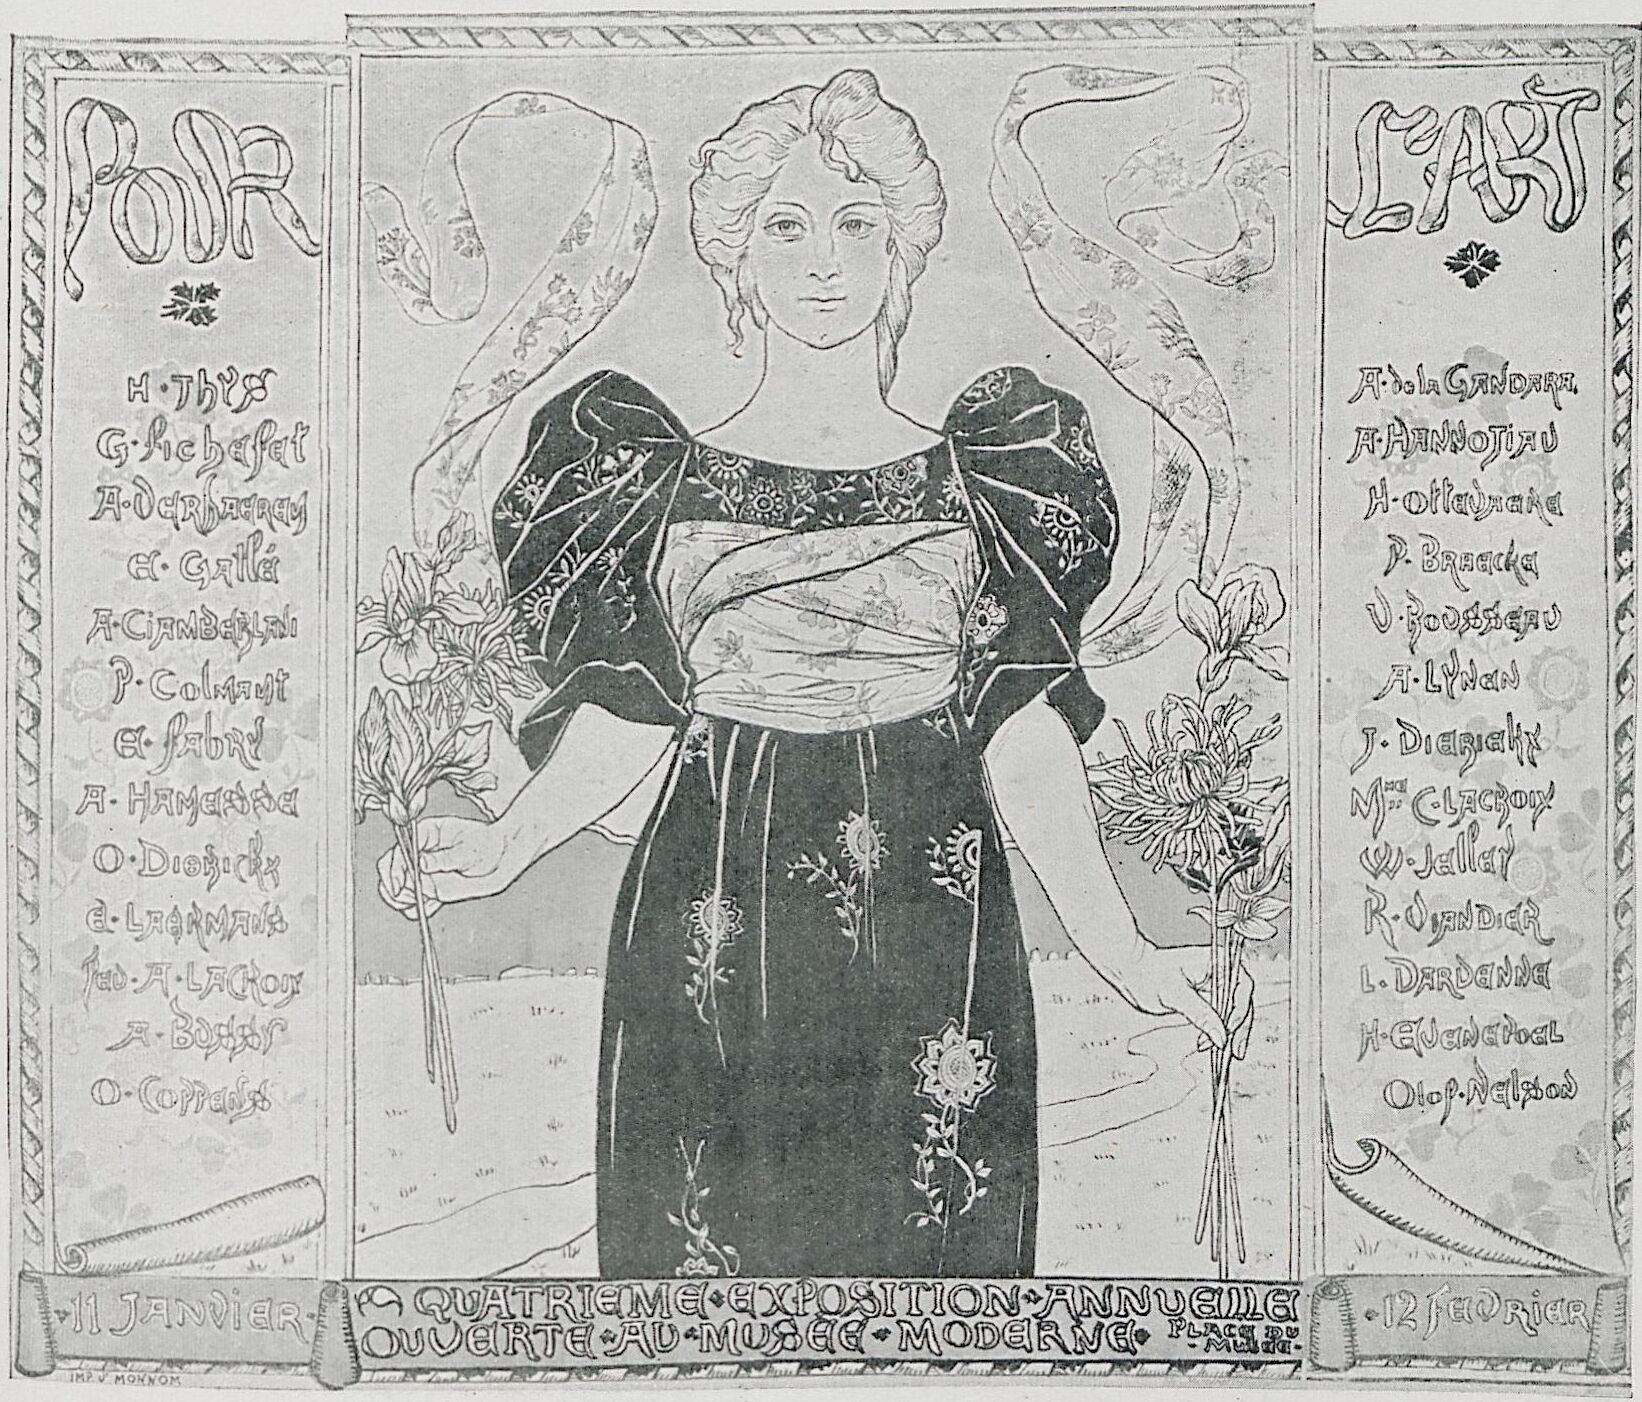 POUR
H·Thys
G·Fichefet
A·Verhaeren
E·Gaillé
A·Ciamberlani
P·Colmant
E·Fabry
A·Hamesse
O·Dierickx
E·Laermans
Fed·A·Lacroix
A·Bossy
O·Coppens
L'ART
A·de la Gandara.
A·Hannotiau
H·Ottevaere
P·Braecke
V·Rousseau
A·Lynen
J·Dierickx
Mme C·Lacroix
W·Jelley
R·Viandier
L·Dardenne
H·Evenepoel
Olof·Nelson
11 JANVIER
QUATRIEME·EXPOSITION·ANNUELLE
OUVERTE·AU·MUSEE·MODERNE· PLACE DU
·MUSEE·
·12 FEVRIER
IMP. V. MONNOM